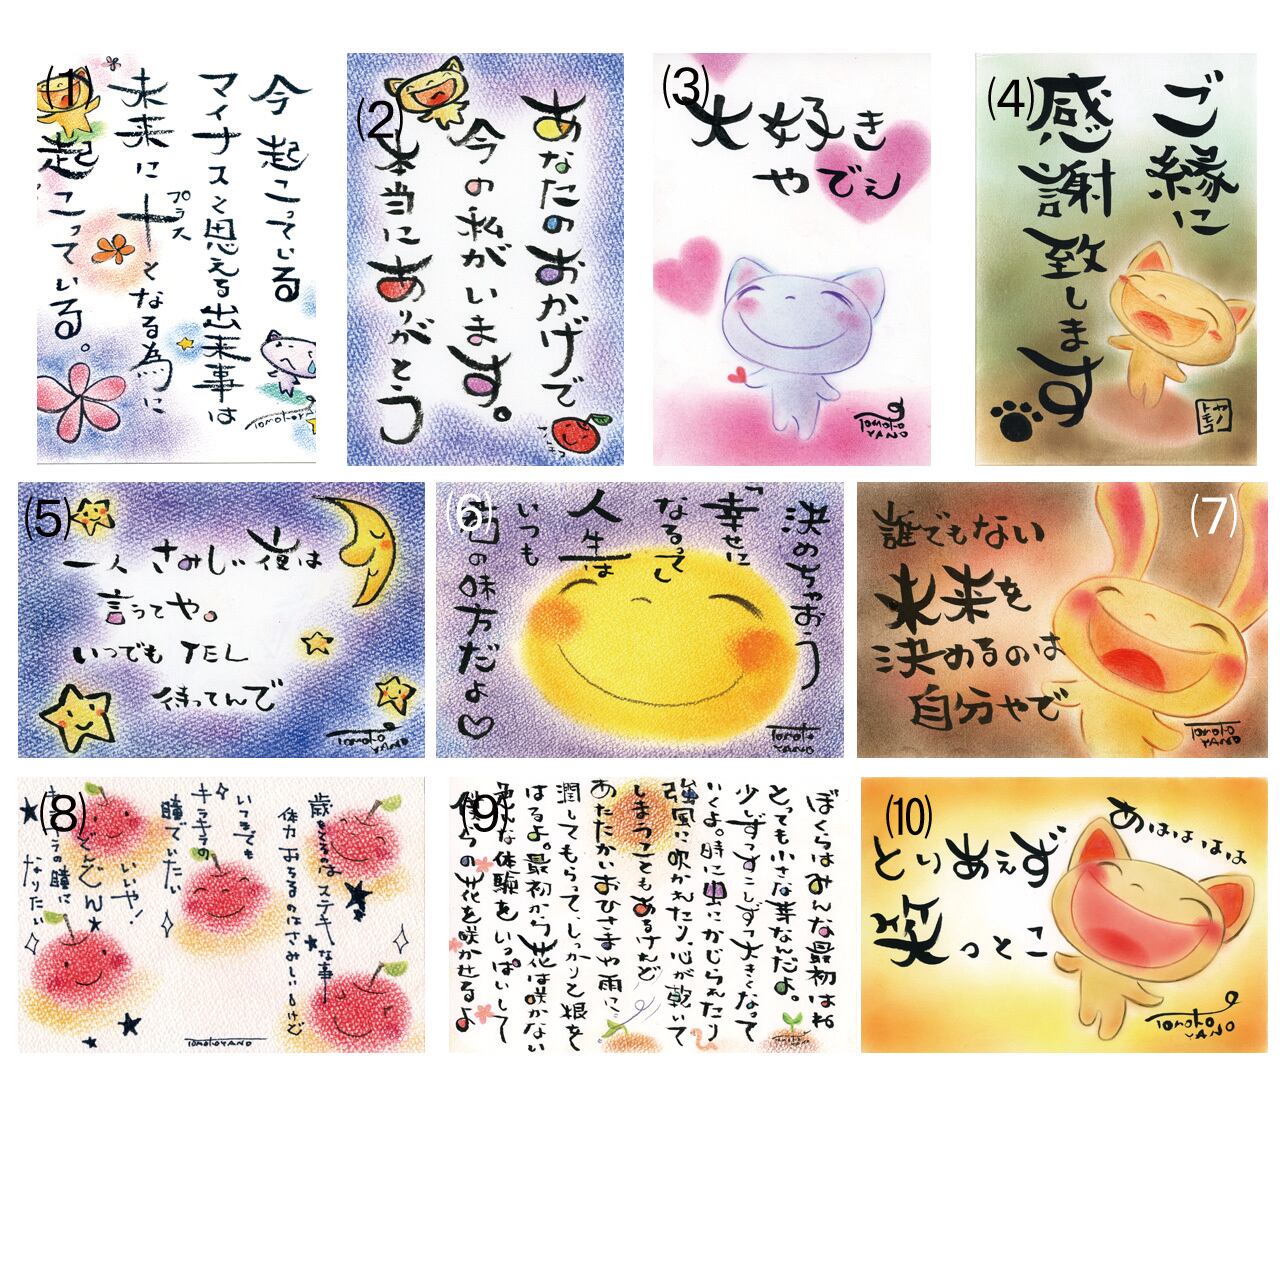 (1)
今 起こっている
マイナスと思える出来事は
未来に十となる為に
プラス
起こっている。
TOMOKO Y
(2)
あなたのおかげで
今の私がいます。
本当にありがとう
(3)
大好き
やでぇ
TOMOKO
YANO
(4)
ご縁に
感謝
致します
ヤノ
トモコ
(5)
一人 さみしい夜は
言うてや。
いつでも TEL
待ってんで
TOMOKO
YANO
(6)
決めちゃおう
「幸せに
なるって」
人生は
いつも
の味方だよ♡
TOMOKO
YANO
(7)
誰でもない
未来を
決めるのは
自分やで
TOMOKO
YANO
(8)
歳をとるのは ステキな事
体力おちるのはさみしいけど
いつまでも
キラキラの
瞳でいたい
いいや!
どんどん
キラキラの瞳に
なりたい
TOMOKO YANO
(9)
ぼくらはみんな最初はね
とっても小さな芽なんだよ。
少しずつすこしずつ大きくなって
いくよ。時に虫にかじられたり
強風に吹かれたり、心が乾いて
しまうこともあるけれど
あたたかいおひさまや雨に
潤してもらって、しっかりと根を
はるよ。最初から花は咲かない
色んな体験をいっぱいして
僕らの花を咲かせるよ
(10)
あははは
とりあえず
笑っとこ
TOMOKO
YANO